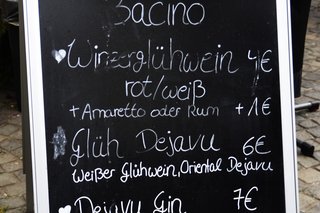 Bacino
Winzerglühwein 4€
rot/weiß
+Amaretto oder Rum +1€
Glüh Dejavu 6€
Weißer Glühwein, Oriental Dejavu
Dejavu Gin 7€